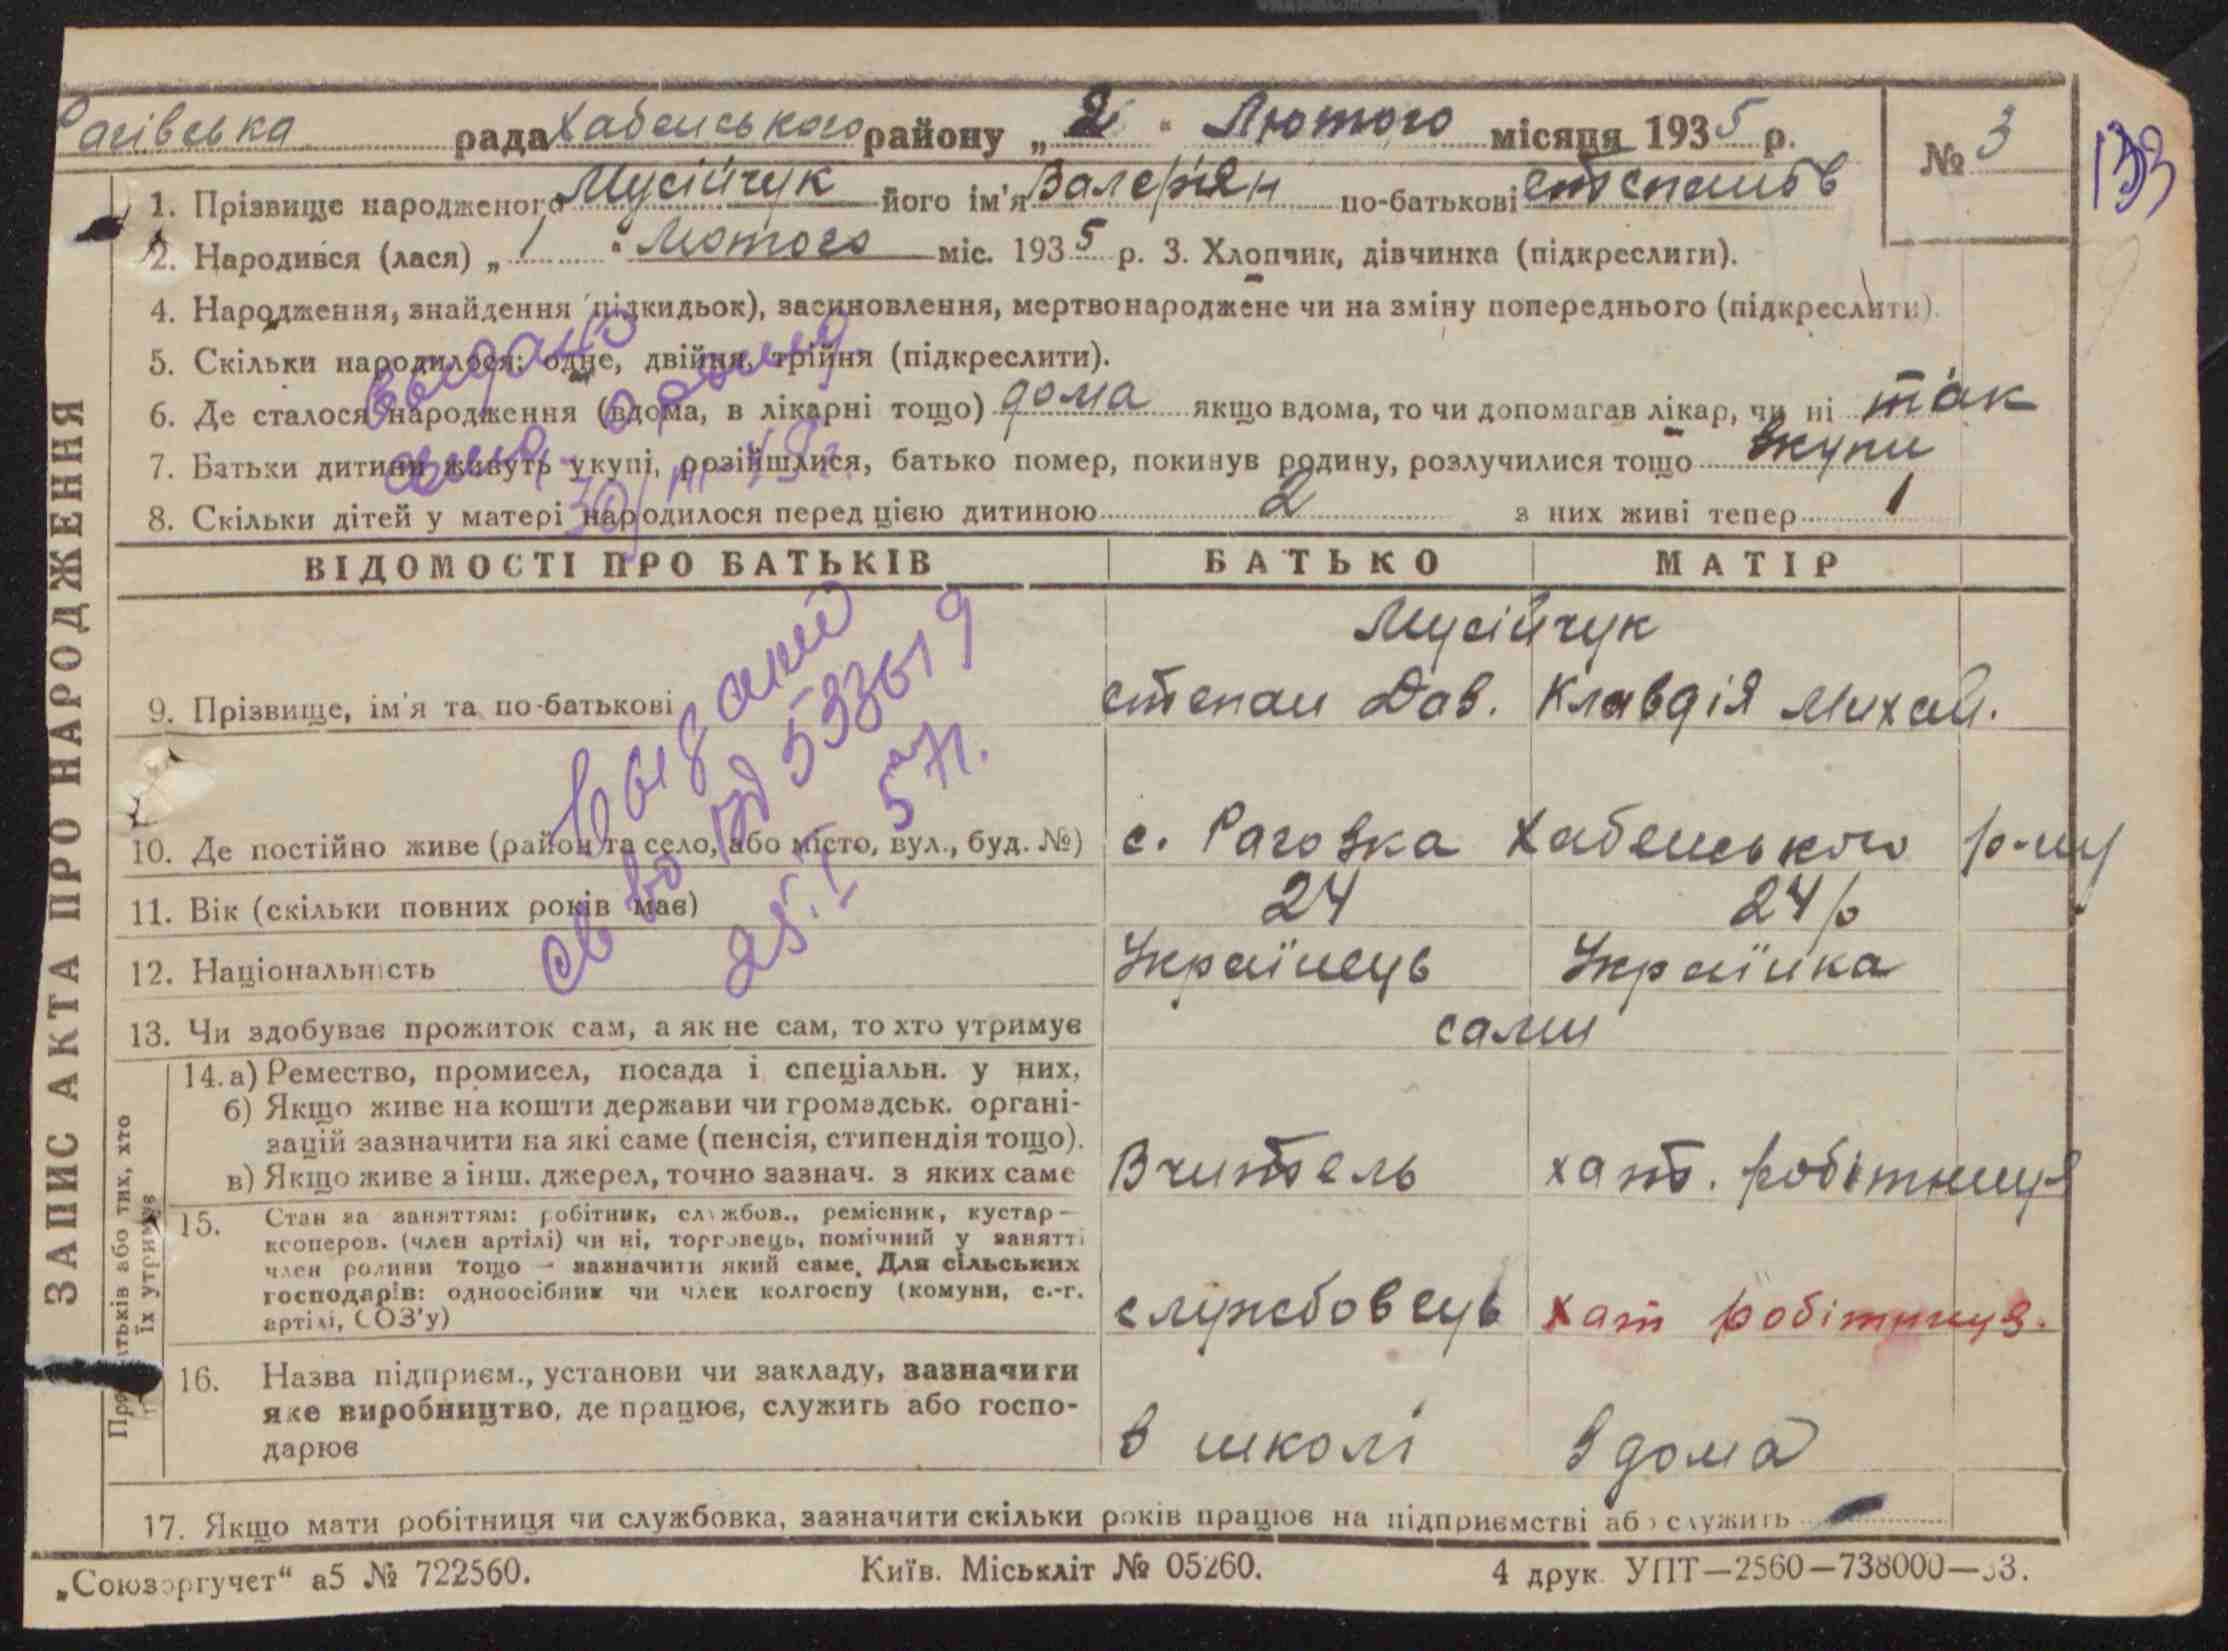 рада Хабенського району „2“ Лютого місяця 1935 р.
№ 3
133
1. Прізвище народженого Мусійчук його ім'я Валер'ян по-батькові
2. Народився (лася) „1“ Лютого міс. 1935 р. 3. Хлопчик, дівчинка (підкреслити).
4. Народження, знайдення (підкидьок), засиновлення, мертвонароджене чи на зміну попереднього (підкреслити).
5. Скільки народилося: одне, двійня, трійня (підкреслити).
6. Де сталося народження (вдома, в лікарні тощо) дома якщо вдома, то чи допомагав лікар, чи ні так
7. Батьки дитини живуть укупі, розійшлися, батько помер, покинув родину, розлучилися тощо вкупи
8. Скільки дітей у матері народилося перед цією дитиною 2 з них живі тепер 1
ЗАПИС АКТА ПРО НАРОДЖЕННЯ
ВІДОМОСТІ ПРО БАТЬКІВ БАТЬКО МАТІР
Мусійчук
9. Прізвище, ім'я та по-батькові степан Дав. Клавдія Михай.
10. Де постійно живе (район та село, або місто, вул., буд. №) с. Раговка Хабенського р-ну
11. Вік (скільки повних років має) 24 24 р
12. Національність Українець Українка
13. Чи здобуває прожиток сам, а як не сам, то хто утримує сами
14. а) Ремество, промисел, посада і спеціальн. у них,
б) Якщо живе на кошти держави чи громадськ. органі-
зацій зазначити на які саме (пенсія, стипендія тощо).
в) Якщо живе з інш. джерел, точно зазнач. з яких саме Вчитель хат. робітниця
15. Стан за заняттям: робітник, службов., ремісник, кустар—
кооперов. (член артілі) чи ні, торговець, помічний у занятті
член родини тощо — зазначити який саме. Для сільських
господарів: одноосібник чи член колгоспу (комуни, с.-г.
артілі, СОЗ'у) службовець хат робітниця.
16. Назва підприєм., установи чи закладу, зазначити
яке виробництво, де працює, служить або госпо-
дарює в школі вдома
17. Якщо мати робітниця чи службовка, зазначити скільки років працює на підприємстві або служить
батьків або тих, хто
їх утримує
выдано
30/III-49г.
выдано
св во 533619
25.I 57г.
„Союзоргучет“ а5 № 722560. Київ. Міськліт № 05260. 4 друк. УПТ—2560—738000—33.